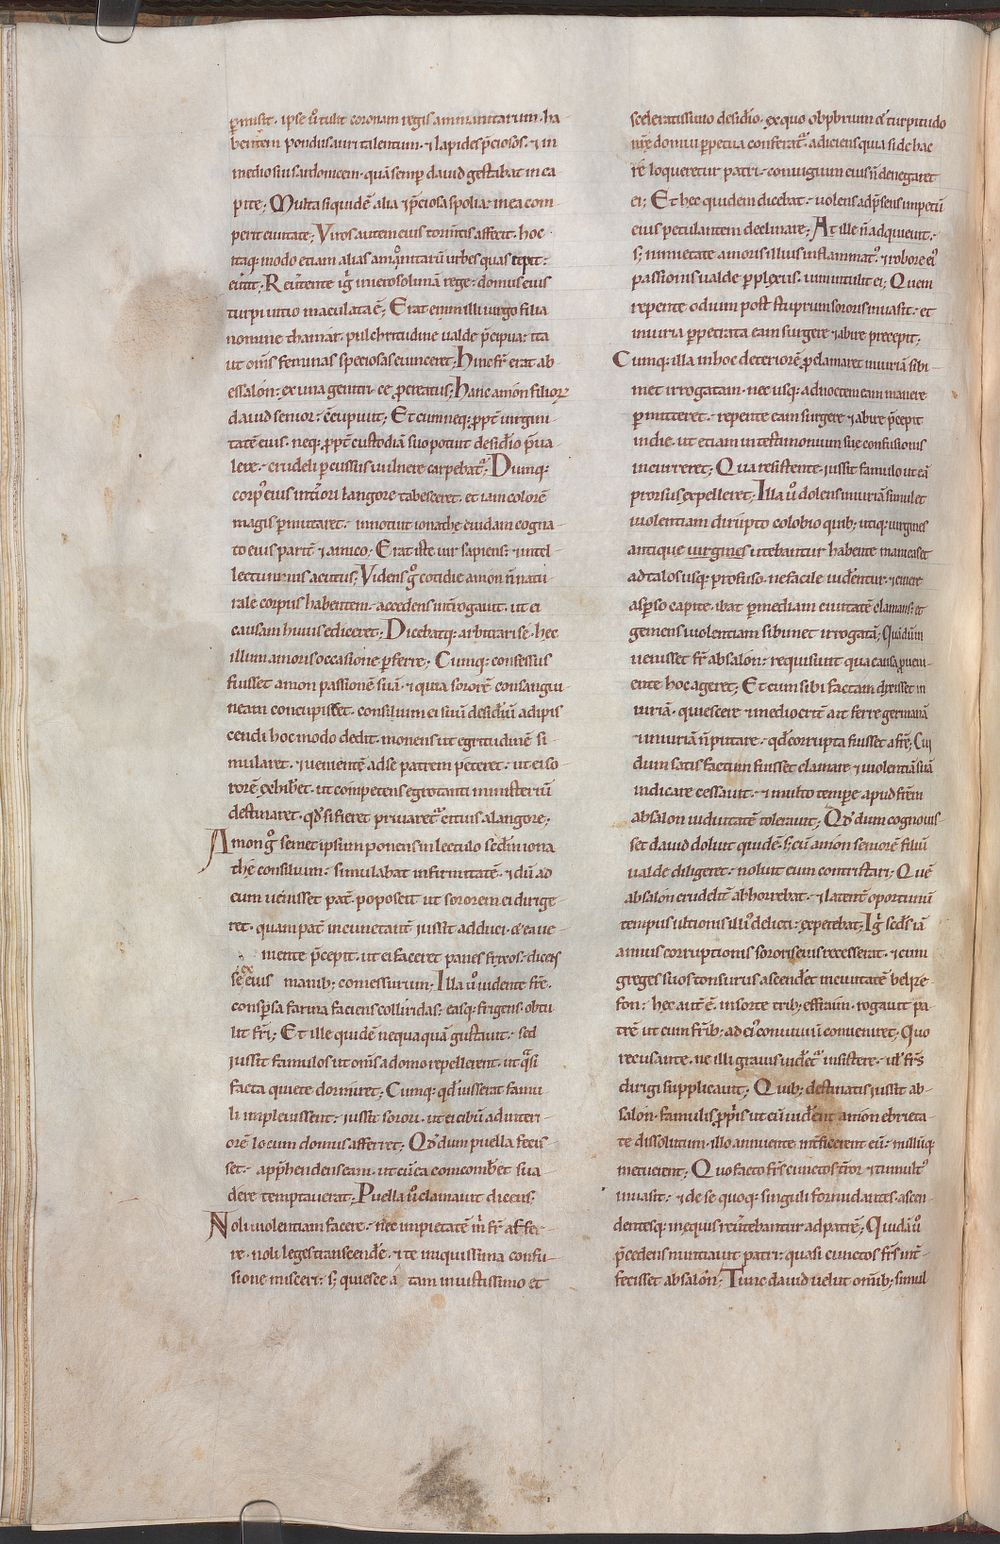 ꝑmisit. ipse ů tulit coronam regis ammanitarum. ha
bentem pondus auri talentum. ⁊ lapides p̄ciosos. ⁊ in
medio sui sardonicem. quā semꝑ dauid gestabat in ca
pite; Multa siquidē alia ⁊ p̄ciosa spolia. in ea com
perit ciuitate; Viros autem eius torm̄tis affecit. hoc
itaq; modo etiam alias amanitarū urbes quas cepit.
euertit; Reūtente igͥ in ierosolimā rege. domus eius
turpi uitio maculata ē; Erat enim illi uirgo filia
nomine thamar. pulchritudine ualde p̄cipua. ita
ut om̄s feminas speciosas euinceret; Huic fr̄ erat ab
essalon. ex una genitrice ꝓcreatus; Hanc amon filioꝝ
dauid senior. c̄cupiuit; Et cum neq; ꝓpt̄ uirgini
tatē eius. neq; ꝓpt̄ custodiā suo potuit desiďio p̄ua
lere. crudeli ꝑcussus uulnere carpebat᷑; Dumq;
corpꝰ eius int̄iori langore tabesceret. et iam colorē
magis ꝑmutaret. innotuit ionathę cuidam cogna
to eius part̄ ⁊ amico; Erat iste uir sapiens. ⁊ intel
lectu nimis acutus; Videns gͦ cotidie amon n̄ natu
rale corpus habentem. accedens int̄rogauit. ut ei
causam huius ediceret; Dicebatq; arbitrari se. hęc
illum amoris occasione ꝑferre; Cumq; confessus
fuisset amon passionē suā. ⁊ quia sororē consangui
neam concupisset. consilium ei suū desiďiū adipis
cendi hoc modo dedit. monens ut egritudinē si
mularet. ⁊ uenientē ad se patrem peteret. ut ei so
rorē exhibēt. ut competens egrotanti ministeriū
destinaret. qd̓ si fieret priuaret᷑ citius a langore;
Amon gͦ semet ipsum ponens in lectulo scďm iona
thę consilium. simulabat infirmitatē. ⁊ dū ad
eum uenisset pat̄. poposcit ut sororem ei dirige
ret. quam pat̄ incunctant̄ iussit adduci. Quę aue
niente p̄cepit. ut ei faceret panes frixos. dicens
se ex eius manib; comessurum; Illa ů uidente fr̄e.
consꝑsa farina faciens colliridas. easq; frigens. obtu
lit fr̄i; Et ille quidē nequaquā gustauit. sed
iussit famulos ut om̄s a domo repellerent. ut q̄si
facta quiete dormiret; Cumq; qd̓ iusserat famu
li impleuissent. iussit sorori. ut ei cibū ad interi
orē locum domus afferret; Qd̓ dum puella fecis
set. app̄hendens eam. ut cū ea concumbēt sua
dere temptauerat; Puella ů clamauit dicens;
Noli uiolentiam facere. nec impietatē m̄ fr̄ affer
re. noli leges transcendēe. ⁊ te iniquissima confu
sione misceri. s; quiesce a tam iniustissimo et
sceleratissimo desiďio. ex quo obꝓbrium & turpitudo
nr̄ę domui ꝑpetua conferat᷑. adiciens quia si de hac
re loqueretur patri. coniugium eius n̄ denegaret
ei; Et hęc quidem dicebat. uolens ad p̄sens impetū
eius petulantem declinare; At ille n̄ adquieuit.
s; nimietate amoris illius inflammatꝰ. ⁊ robore eiꝰ
passionis ualde ꝑplexus. uim intulit ei; Quem
repente odium post stuprum sororis inuasit. et
iniuria ꝑpetrata eam surgere ⁊ abire precepit;
Cumq; illa in hoc deteriorē ꝓclamaret iniuriā sibi
met irrogatam. nec usq; ad noctem eam manere
ꝑmitteret. repente eam surgere ⁊ abire p̄cepit
in die. ut etiam in testimonium suę confusionis
incurreret; Qua resistente. iussit famulo ut eā
prorsus expelleret; Illa ů dolens iniuriā simul et
uiolentiam dirupto colobio quib; utiq; uirgines
antiquę uirgines utebantur habente manicas et
ad talos usq; profuso. ne facile uiďentur. ⁊ cinere
asꝑso capite. ibat ꝑ mediam ciuitatē clamans. et
gemens uiolentiam sibimet irrogatā; Quā dum
uenisset fr̄ absalon. requisiuit qua causa ꝓueni
ente hoc ageret; Et cum sibi factam dixisset in
iuriā. quiescere ⁊ mediocrit̄ ait ferre germanā
⁊ iniuriā n̄ putare. qd̓ corrupta fuisset a fr̄e; Cui
dum satis factum fuisset clamare ⁊ uiolentiā suā
indicare cessauit. ⁊ multo tempore apud fr̄em
absalon uiduitatē tolerauit; Qd̓ dum cognouis
set dauid doluit quidē. s; cū amon seniorē filiū
ualde diligeret. noluit eum contristari; Quē
absalon crudelit̄ abhorrebat. ⁊ latent̄ oportunū
tempus ultionis illiꝰ delicti. expetebat; Igͥ scďs iā
annus corruptionis sororis eius recesserat. ⁊ cum
greges suos tonsurus ascendēt in ciuitatē belze
fon. hęc aut̄ ē in sorte tribꝰ effraim. rogauit pa
trē ut cum fr̄ib; ad eiꝰ conuiuiū conueniret; Quo
recusante. ne illi grauis uideret᷑ insistere. ut fr̄s
dirigi supplicauit; Quib; destinatis iussit ab
salon famulis ꝓpriis ut cū uiďent amon ebrieta
te dissolutum. illo annuente int̄ficerent eū. nullūq;
metuerent; Quo facto fr̄s cunctos t̄ror ⁊ tumultꝰ
inuasit. ⁊ de se quoq; singuli formidantes. ascen
dentesq; in equis reūtebantur ad patrē; Quidā ů
p̄cedens nuntiauit patri. quasi cunctos fr̄s int̄
fecisset absalon; Tunc dauid uelut om̄ib; simul